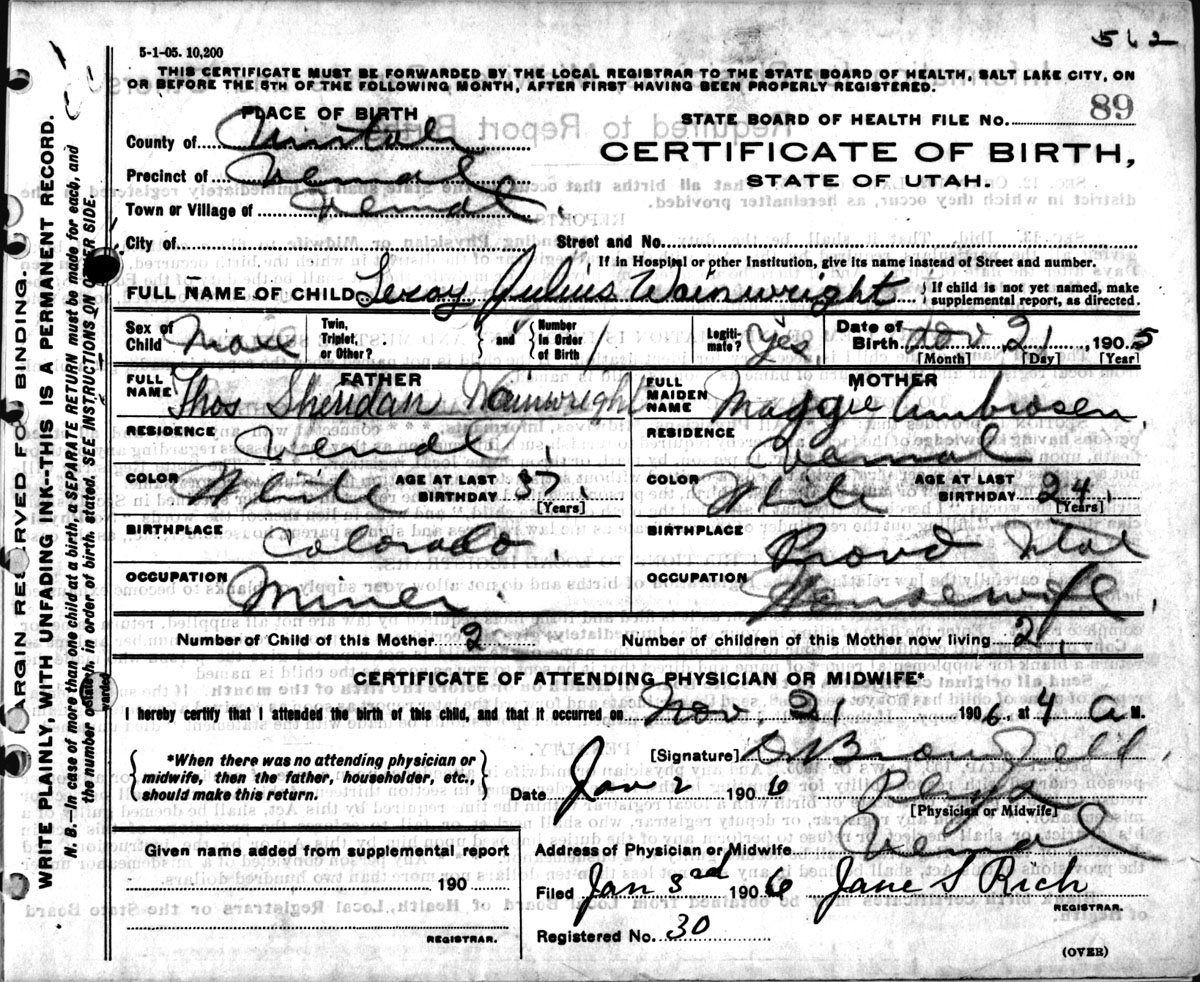 562
5-1-05. 10,200
THIS CERTIFICATE MUST BE FORWARDED BY THE LOCAL REGISTRAR TO THE STATE BOARD OF HEALTH, SALT LAKE CITY, ON
OR BEFORE THE 5TH OF THE FOLLOWING MONTH, AFTER FIRST HAVING BEEN PROPERLY REGISTERED.
PLACE OF BIRTH
County of Uintah
Precinct of Vernal
Town or Village of Vernal.
STATE BOARD OF HEALTH FILE NO. 89
CERTIFICATE OF BIRTH,
STATE OF UTAH.
City of Street and No.
If in Hospital or other Institution, give its name instead of Street and number.
FULL NAME OF CHILD Leroy Julius Wainwright { If child is not yet named, make
supplemental report, as directed.
Sex of Child Male Twin, Triplet, or Other? { and } Number in Order of Birth Legiti-mate? Yes Date of Birth Nov 21, 1905
[Month] [Day] [Year]
FATHER
FULL NAME Thos Sheridan Wainwright
RESIDENCE Vernal.
COLOR White AGE AT LAST BIRTHDAY 37. [Years]
BIRTHPLACE Colorado.
OCCUPATION Miner.
MOTHER
FULL MAIDEN NAME Maggie Ambrosen
RESIDENCE Vernal
COLOR White AGE AT LAST BIRTHDAY 24. [Years]
BIRTHPLACE Provo Utah
OCCUPATION Housewife.
Number of Child of this Mother 2 Number of children of this Mother now living 2.
CERTIFICATE OF ATTENDING PHYSICIAN OR MIDWIFE*
I hereby certify that I attended the birth of this child, and that it occurred on Nov. 21 1906, at 4 A M.
{ *When there was no attending physician or
midwife, then the father, householder, etc.,
should make this return. }
[Signature]
Date Jan 2 1906
[Physician or Midwife]
Address of Physician or Midwife Vernal
Filed Jan 3rd 1906 Jane S Rich
REGISTRAR.
Registered No. 30
Given name added from supplemental report
190
REGISTRAR.
(OVER)
MARGIN RESERVED FOR BINDING.
WRITE PLAINLY, WITH UNFADING INK--THIS IS A PERMANENT RECORD.
N. B.--In case of more than one child at a birth, a SEPARATE RETURN must be made for each, and
the number of each, in order of birth, stated. SEE INSTRUCTIONS ON OTHER SIDE.